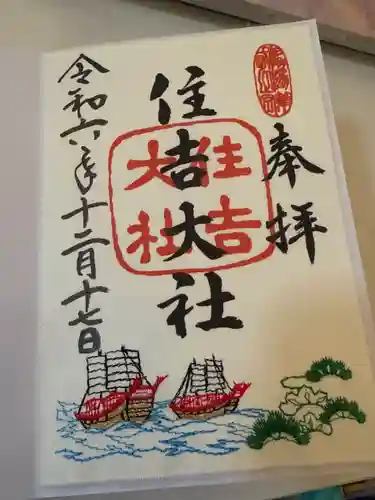 奉拝
住吉大社
住吉
大社
令和六年十二月十七日